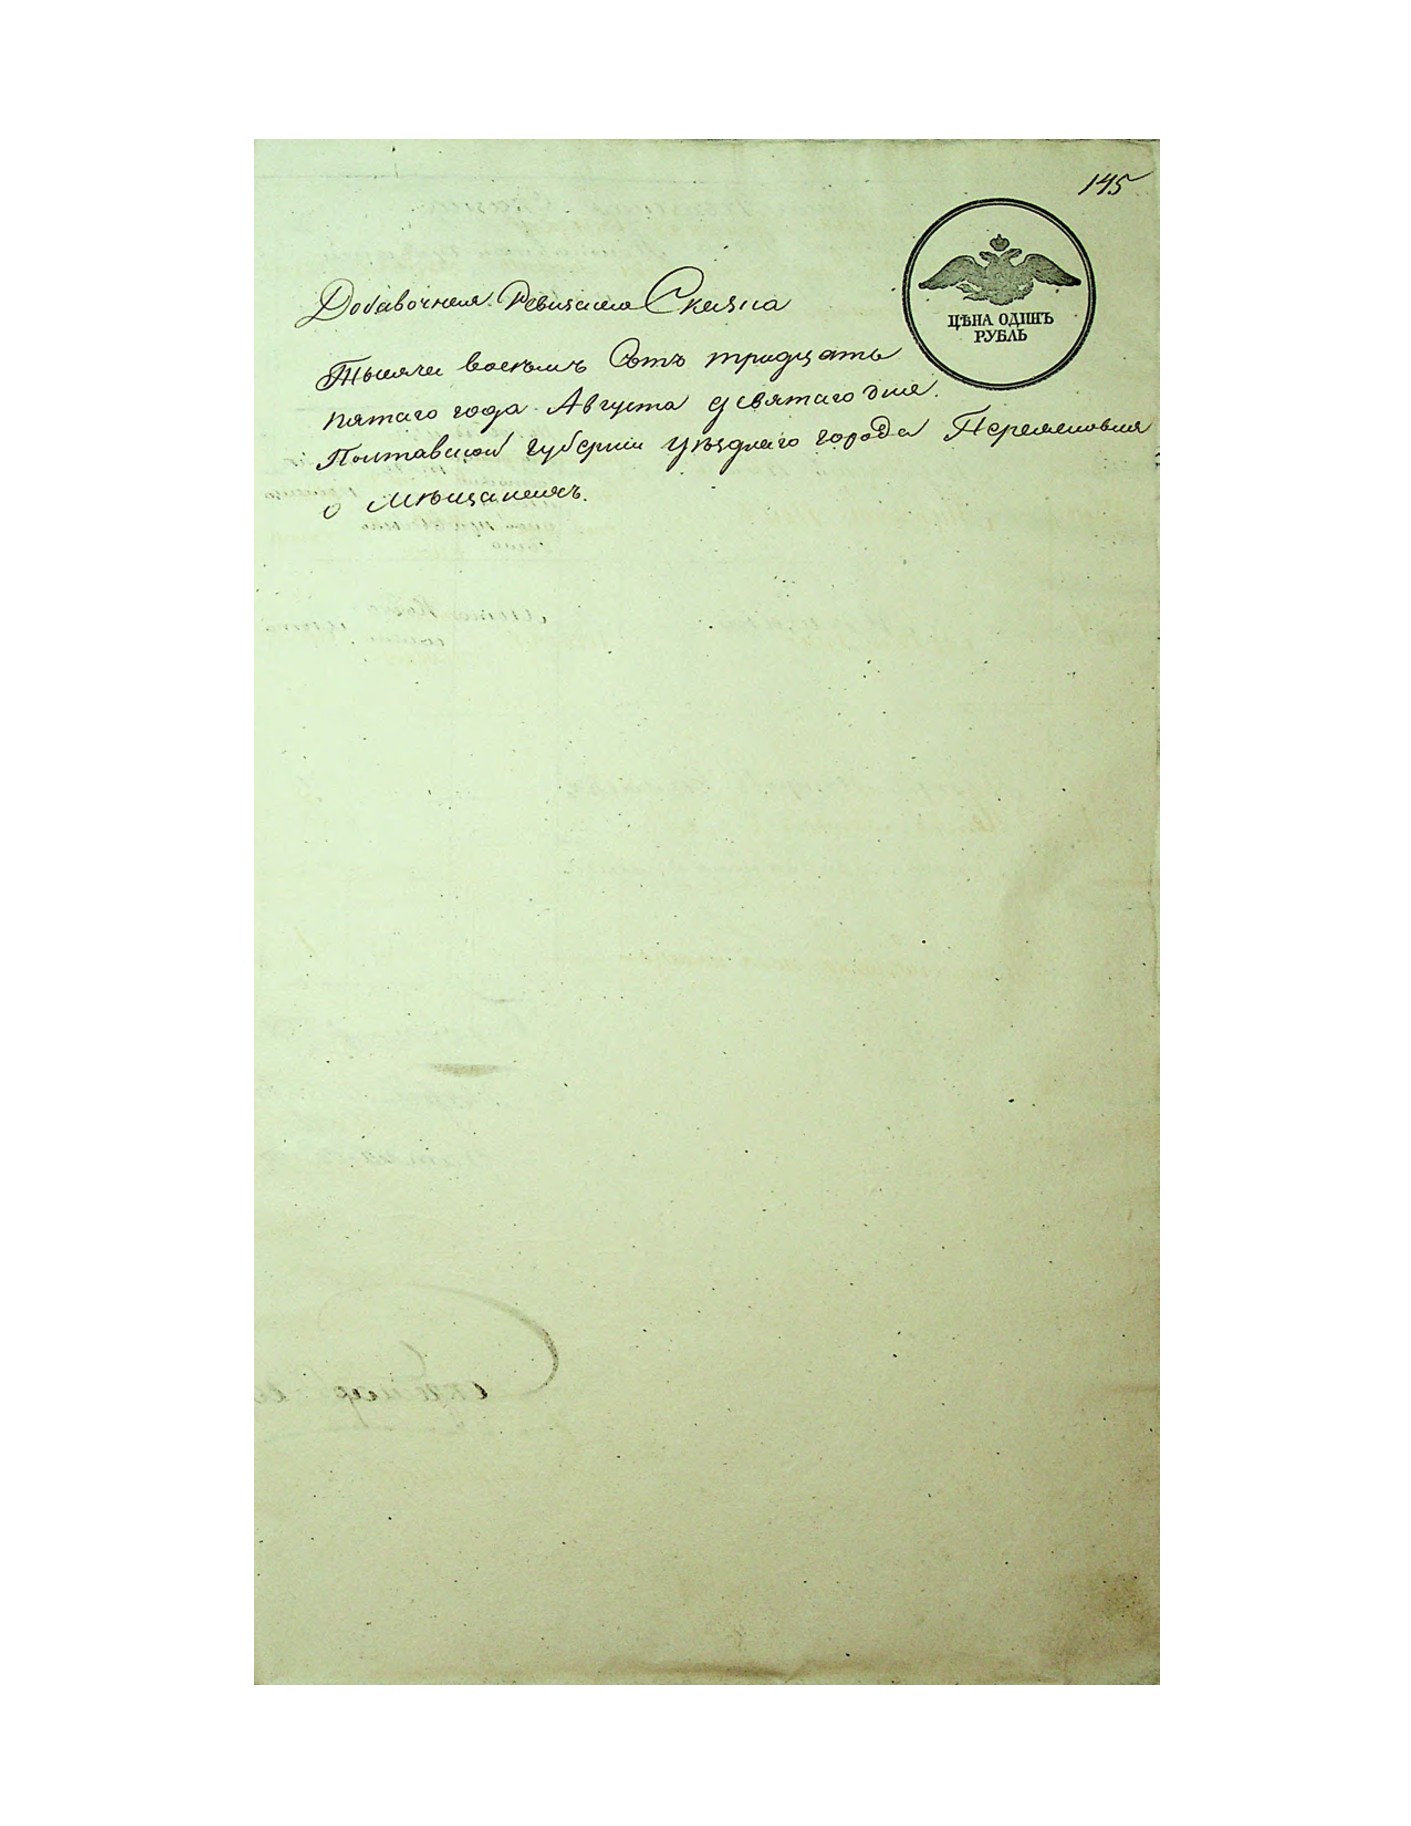 145
ЦѢНА ОДИНЪ
РУБЛЬ
Добавочная Ревизская Сказка
Тысяча восемь Сотъ тридцать
пятаго года Августа девятаго дня.
Полтавской губернии уѣзднаго города Переяславля
о Мѣщанахъ.